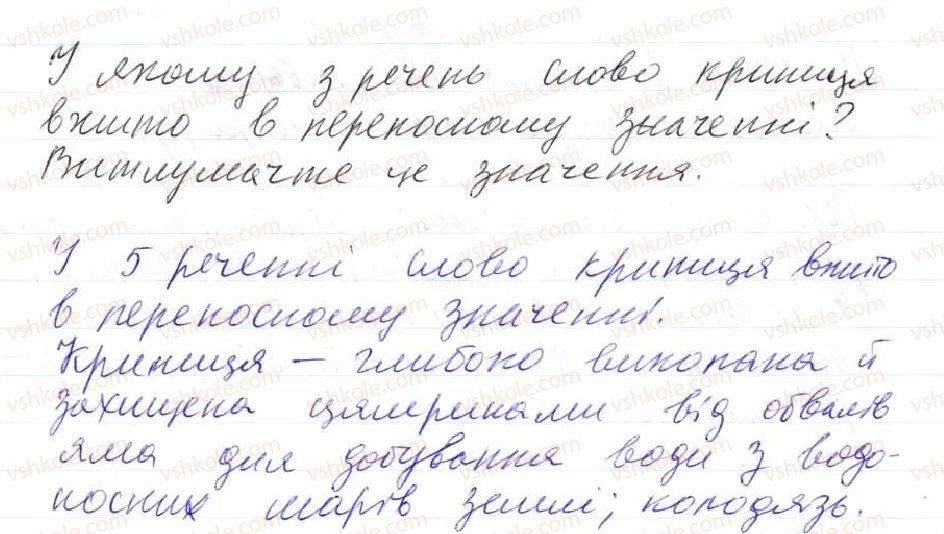 У якому з речень слово криниця
вжито в переносному значенні?
Витлумачте це значення.
У 5 реченні слово криниця вжито
в переносному значенні.
Криниця – глибоко викопана й
захищена цямринами від обвалів
яма для добування води з водо-
носних шарів землі; колодязь.